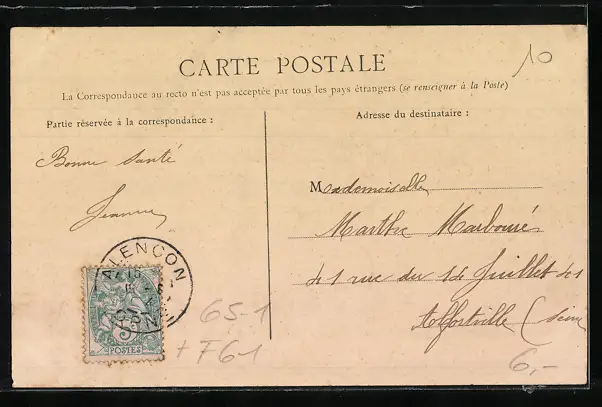 CARTE POSTALE
10
La Correspondance au recto n'est pas acceptée par tous les pays étrangers (se renseigner à la Poste)
Partie réservée à la correspondance :
Adresse du destinataire :
Bonne santé
Jeanne
Mademoiselle
Marthe Marbouré
41 rue du 14 Juillet 41
Alfortville (Seine
ALENÇON
ORNE
POSTES
65-1
+ F61
6,-